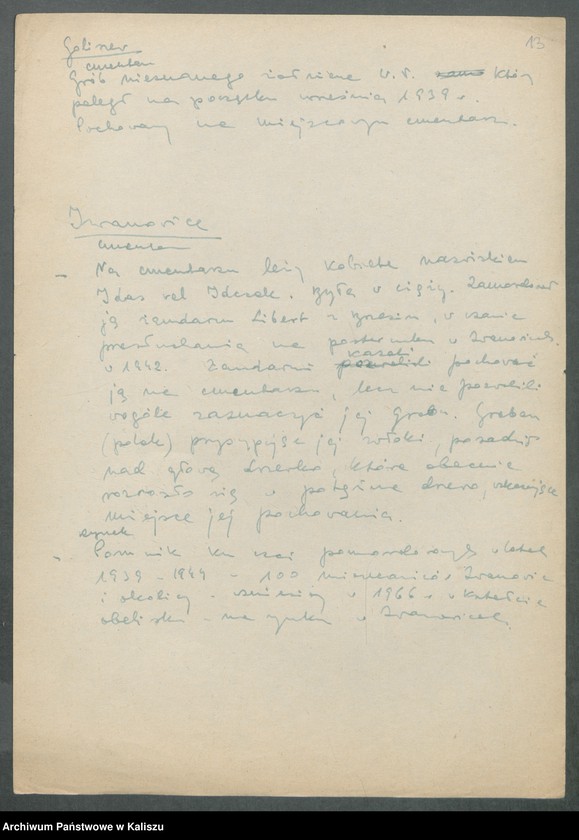 13
cmentarz
Grób nieznanego żołnierza W.P. który
poległ na początku września 1939 r.
Pochowany na miejscowym cmentarzu.
Iwanovice
cmentarz
- Na cmentarzu leży kobieta nazwiskiem
Idas vel Idczak. Była w ciąży. Zamordował
ją żandarm Libert z Brzezin, w czasie
przesłuchania na posterunku w Iwanowicach
w 1942. Żandarmi kazali pochować
ją na cmentarzu, lecz nie pozwolili
wogóle zaznaczyć jej grobu. Grabarz
(polak) przysypując jej zwłoki, posadził
nad głową drzewko, które obecnie
rozrosło się w potężne drzewo, wskazujące
miejsce jej pochowania.
rynek
- Pomnik ku czci pomordowanych w latach
1939 - 1944 - 100 mieszkańców Iwanowic
i okolicy - wzniesiony w 1966 r. w kształcie
obelisku - na rynku w Iwanowicach.
Archiwum Państwowe w Kaliszu